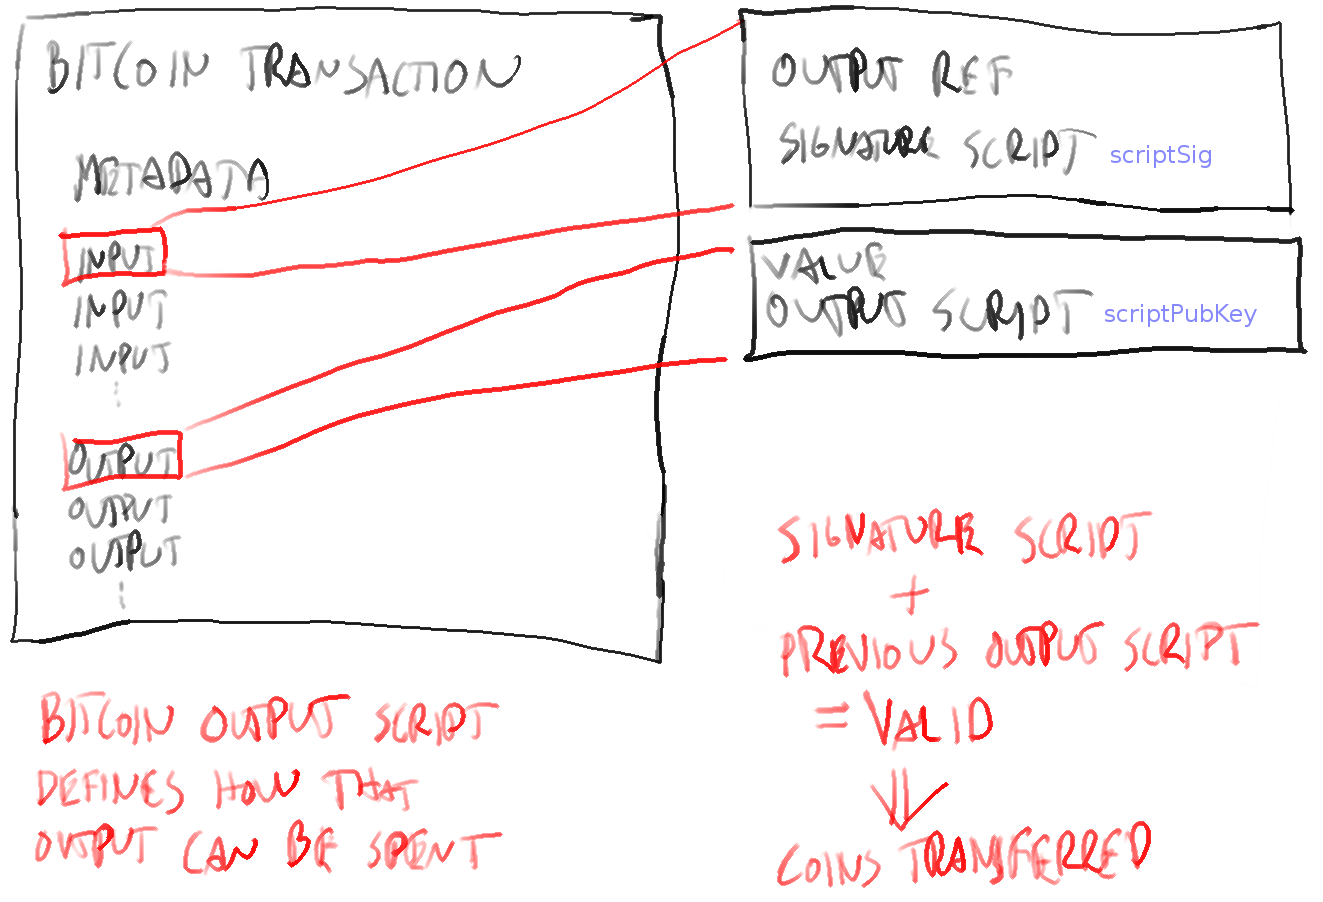 BITCOIN TRANSACTION
METADATA
INPUT
INPUT
INPUT
OUTPUT
OUTPUT
OUTPUT
OUTPUT REF
SIGNATURE SCRIPT scriptSig
VALUE
OUTPUT SCRIPT scriptPubKey
BITCOIN OUTPUT SCRIPT
DEFINES HOW THAT
OUTPUT CAN BE SPENT
SIGNATURE SCRIPT
+
PREVIOUS OUTPUT SCRIPT
= VALID
⇓
COINS TRANSFERRED